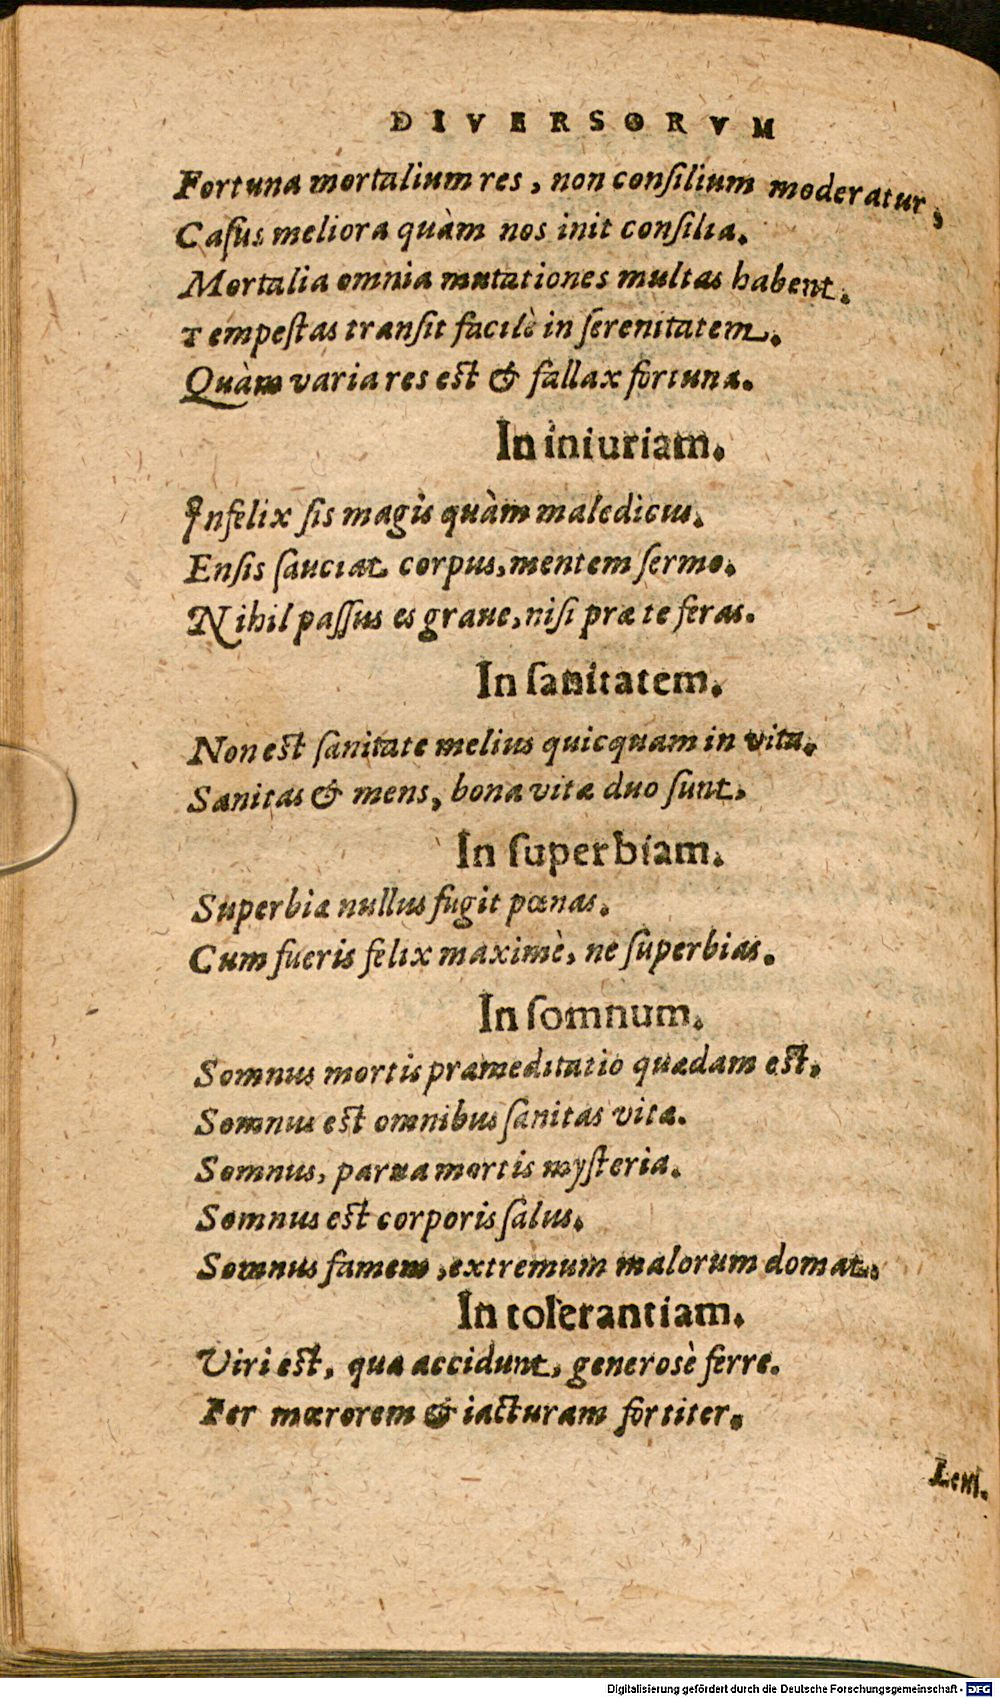 DIVERSORVM
Fortuna mortalium res, non conſilium moderatur,
Caſus meliora quàm nos init conſilia.
Mortalia omnia mutationes multas habent.
Tempeſtas tranſit facilè in ſerenitatem.
Quàm varia res eſt & fallax fortuna.
In iniuriam.
Infelix ſis magis quàm maledicus.
Enſis ſauciat corpus, mentem ſermo.
Nihil paſſus es graue, niſi præ te feras.
In ſanitatem.
Non eſt ſanitate melius quicquam in vita.
Sanitas & mens, bona vitæ duo ſunt.
In ſuperbiam.
Superbiæ nullus fugit pœnas.
Cum fueris felix maximè, ne ſuperbias.
In ſomnum.
Somnus mortis præmeditatio quædam eſt.
Somnus eſt omnibus ſanitas vitæ.
Somnus, parua mortis myſteria.
Somnus eſt corporis ſalus.
Somnus famem, extremum malorum domat.
In tolerantiam.
Viri eſt, quæ accidunt, generosè ferre.
Fer mœrorem & iacturam fortiter.
Digitalisierung gefördert durch die Deutsche Forschungsgemeinschaft - DFG